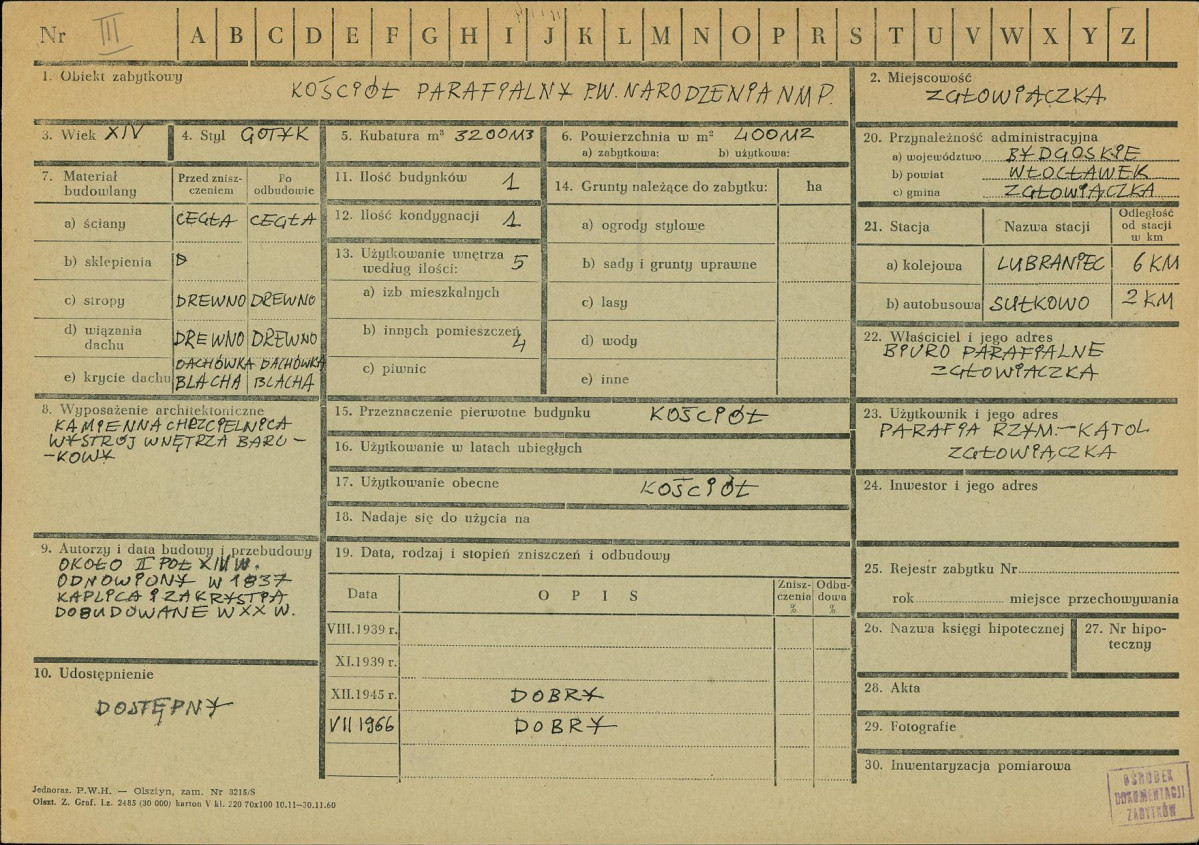 Nr III A B C D E F G H I J K L M N O P R S T U V W X Y Z
1. Obiekt zabytkowy
KOŚCIÓŁ PARAFIALNY P.W. NARODZENIA NMP.
2. Miejscowość
ZGŁOWIĄCZKA
3. Wiek XIV
4. Styl GOTYK
5. Kubatura m³ 3200M3
6. Powierzchnia w m² 400M2
a) zabytkowa: b) użytkowa:
20. Przynależność administracyjna
a) województwo BYDGOSKIE
b) powiat WŁOCŁAWEK
c) gmina ZGŁOWIĄCZKA
7. Materiał budowlany
Przed znisz-
czeniem
Po
odbudowie
a) ściany CEGŁA CEGŁA
b) sklepienia
c) stropy DREWNO DREWNO
d) wiązania
dachu DREWNO DREWNO
DACHÓWKA DACHÓWKA
e) krycie dachu BLACHA BLACHA
11. Ilość budynków 1
12. Ilość kondygnacji 1
13. Użytkowanie wnętrza
według ilości: 5
a) izb mieszkalnych
b) innych pomieszczeń 4
c) piwnic
14. Grunty należące do zabytku: ha
a) ogrody stylowe
b) sady i grunty uprawne
c) lasy
d) wody
e) inne
21. Stacja Nazwa stacji
Odległość
od stacji
w km
a) kolejowa LUBRANIEC 6 KM
b) autobusowa SUŁKOWO 2 KM
22. Właściciel i jego adres
BIURO PARAFIALNE
ZGŁOWIACZKA
8. Wyposażenie architektoniczne
KAMIENNA CHRZCIELNICA
WYSTRÓJ WNĘTRZA BARO-
-KOWY
15. Przeznaczenie pierwotne budynku KOŚCIÓŁ
16. Użytkowanie w latach ubiegłych
17. Użytkowanie obecne KOŚCIÓŁ
18. Nadaje się do użycia na
23. Użytkownik i jego adres
PARAFIA RZYM.-KATOL
ZGŁOWIĄCZKA
24. Inwestor i jego adres
9. Autorzy i data budowy i przebudowy
OKOŁO II POŁ XIV W.
ODNOWIONY W 1837
KAPLICA I ZAKRYSTIA
DOBUDOWANE W XX W.
10. Udostępnienie
DOSTĘPNY
19. Data, rodzaj i stopień zniszczeń i odbudowy
Data OPIS
Znisz-
czenia
%
Odbu-
dowa
%
VIII.1939 r.
XI.1939 r.
XII.1945 r. DOBRY
VII 1966 DOBRY
25. Rejestr zabytku Nr
rok miejsce przechowywania
26. Nazwa księgi hipotecznej
27. Nr hipo-
teczny
28. Akta
29. Fotografie
30. Inwentaryzacja pomiarowa
Jednoraz. P.W.H. — Olsztyn, zam. Nr 3215/S
Olszt. Z. Graf. Lz. 2485 (30 000) karton V kl. 220 70x100 10.11—30.11.60
OŚRODEK
DOKUMENTACJI
ZABYTKÓW